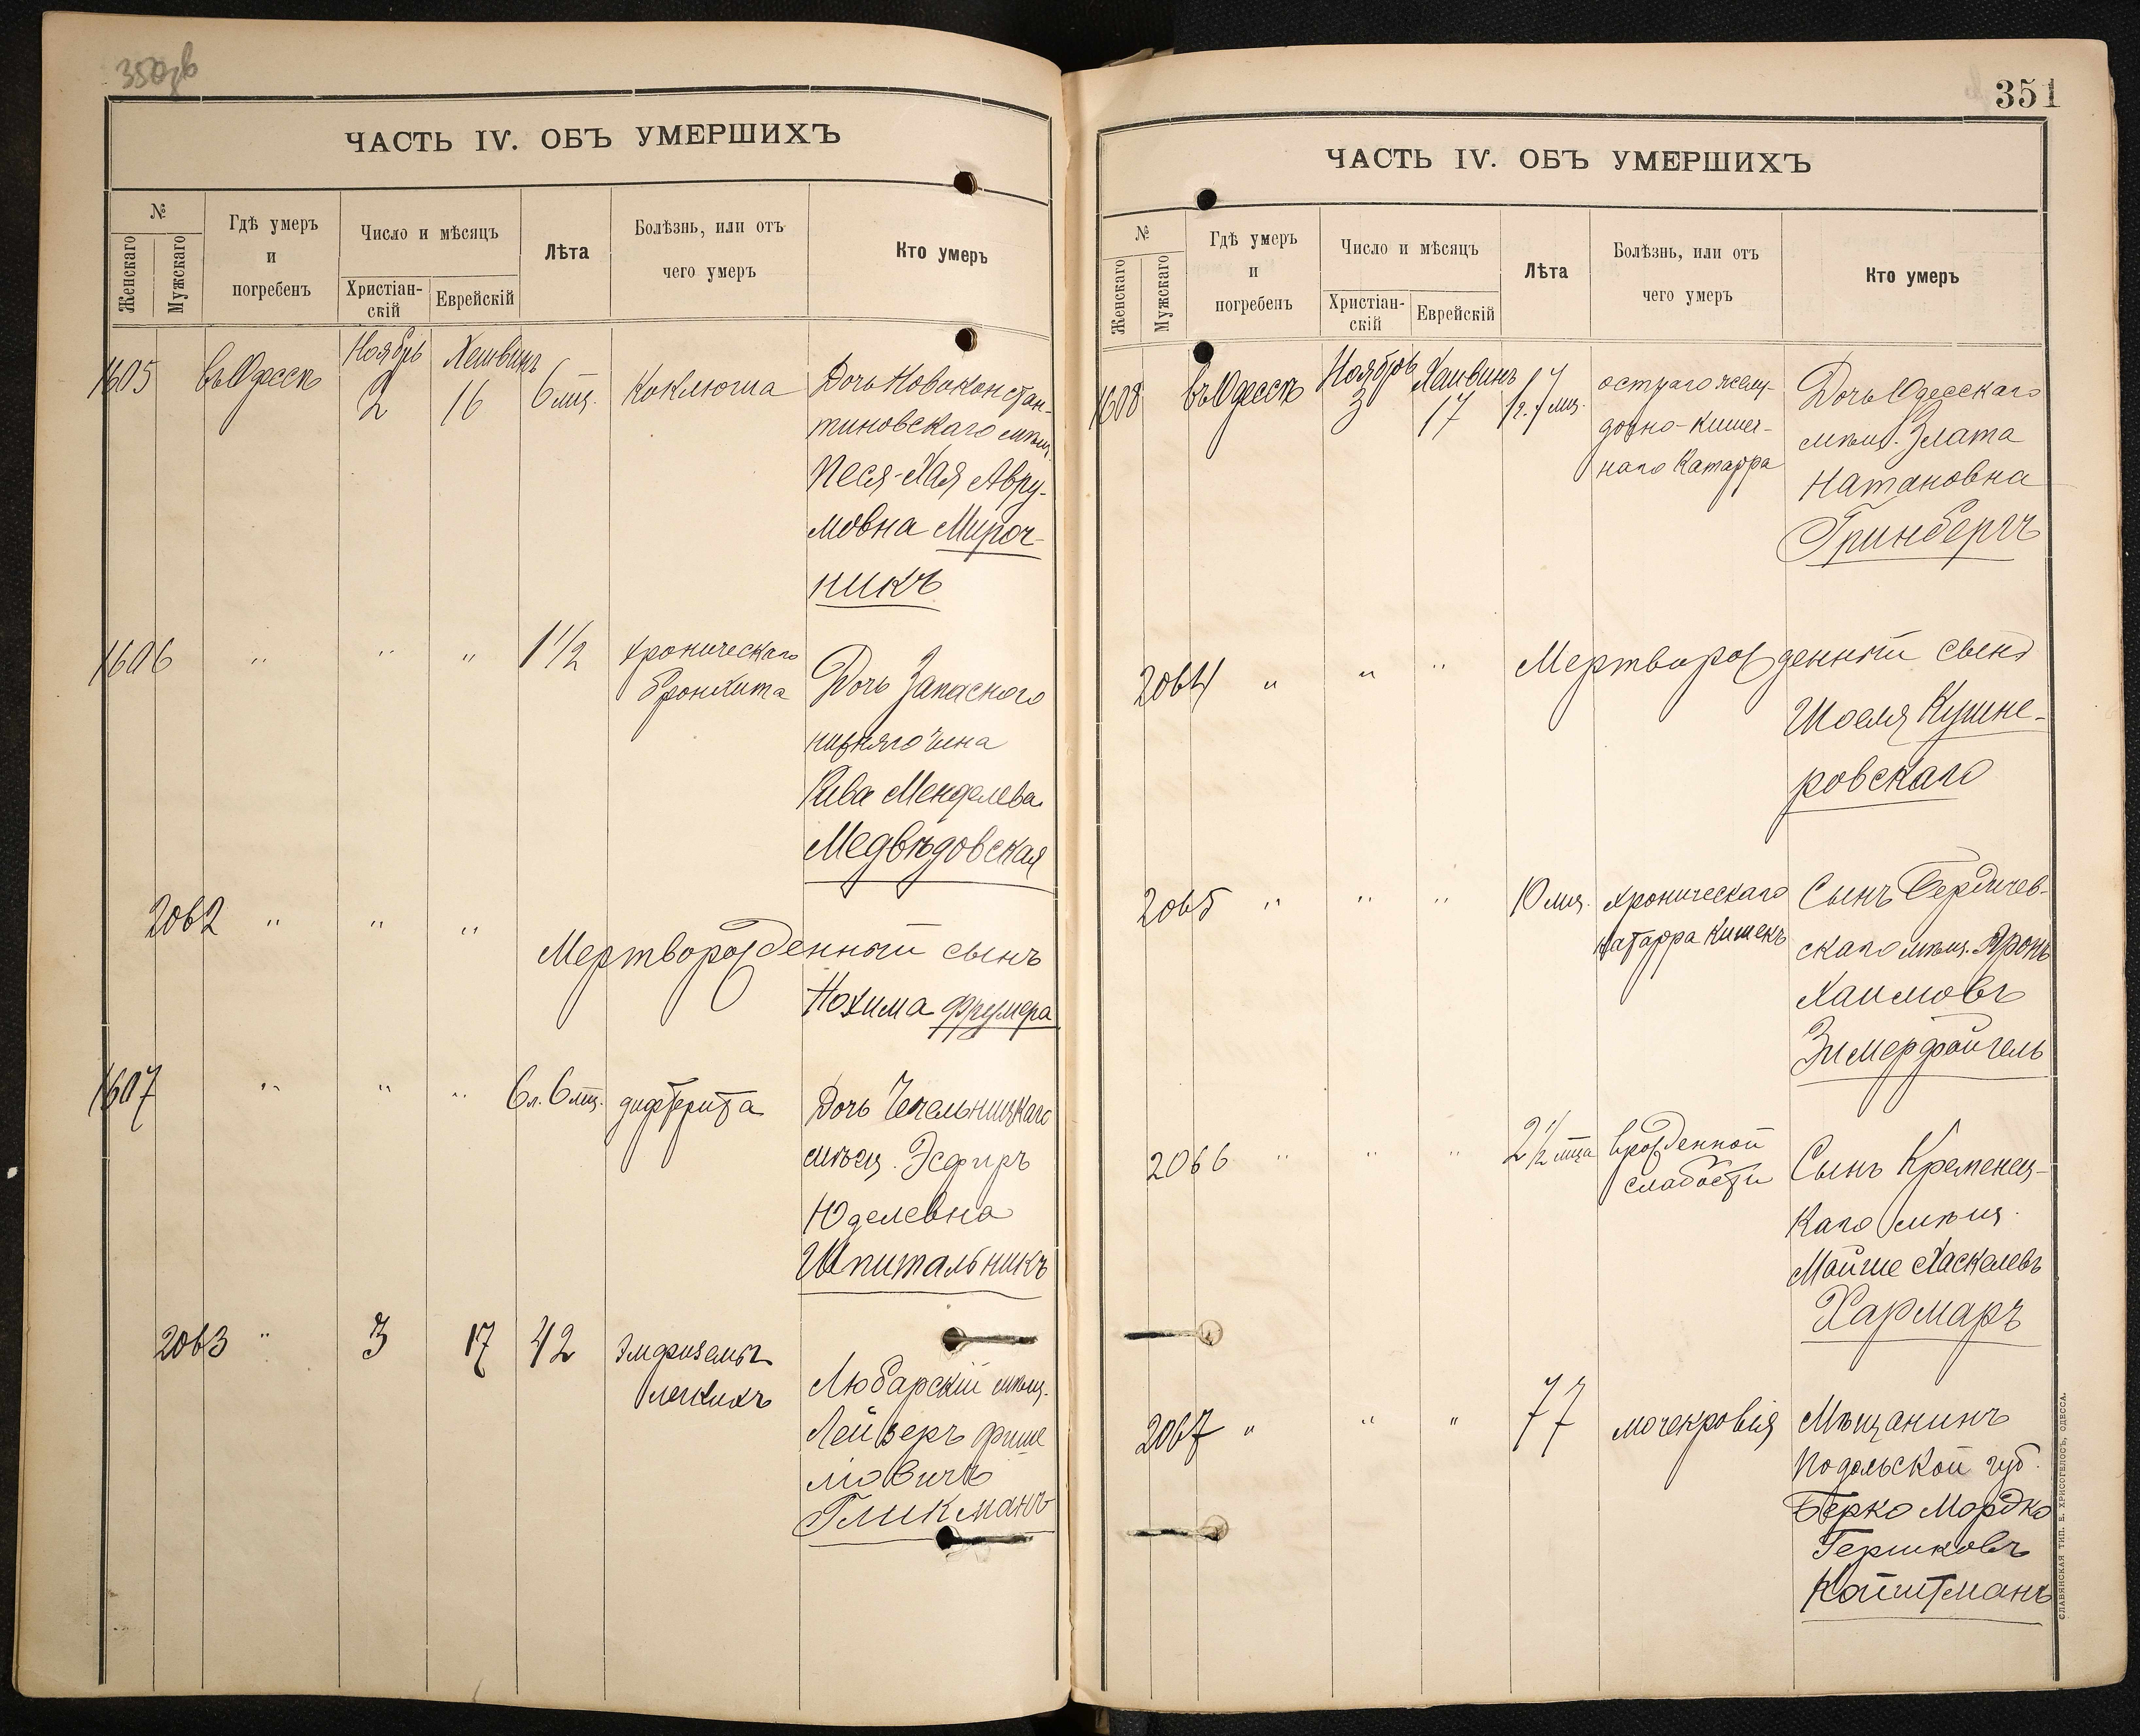 350об
ЧАСТЬ IV. ОБЪ УМЕРШИХЪ
№
Женскаго
Мужскаго
Гдѣ умеръ
и
погребенъ
Число и мѣсяцъ
Христіан-
скій
Еврейскій
Лѣта
Болѣзнь, или отъ
чего умеръ
Кто умеръ
1605 въ Одессѣ Ноябрь 2 Хешвинъ 16 6 мц. Коклюша Дочь Новоконстан-
тиновскаго мѣщ.
Песя-Хая Авру-
мовна Мироч-
никъ
1606 " " " 1 1/2 хроническаго
бронхита
Дочь Запаснаго
нижняго чина
Рива Менделева
Медвѣдовская
2062 " " "
Мертворожденный сынъ
Нохима Фрумера
1607 " " " 6 л. 6 мц. дифтерита Дочь Чечельницкаго
мѣщ. Эсфирь
Юделевна
Шпитальникъ
2063 " 3 17 42 Эмфиземы
легкихъ
Любарскій мѣщ.
Лейзеръ Фише
лiовичъ
Гликманъ
351
ЧАСТЬ IV. ОБЪ УМЕРШИХЪ
№
Женскаго
Мужскаго
Гдѣ умеръ
и
погребенъ
Число и мѣсяцъ
Христіан-
скій
Еврейскій
Лѣта
Болѣзнь, или отъ
чего умеръ
Кто умеръ
1608 въ Одессѣ Ноябрь 3 Хешвинъ 17 1 г. 7 мц. остраго желу-
дочно-кишеч-
наго Катарра
Дочь Одесскаго
мѣщ. Злата
Натановна
Гринбергъ
2064 " " " Мертворожденный сынъ
Шоеля Кушне-
ровскаго
2065 " " " 10 мц. хроническаго
катарра кишекъ
Сынъ Бердичев-
скаго мѣщ. Аронъ
Хаимовъ
Зимерфойгель
2066 " " " 2 1/2 мца врожденной
слабости
Сынъ Кременец-
каго мѣщ.
Мойше Хаскелевъ
Хармаръ
2067 " " " 77 мочекровія Мѣщанинъ
Подольской губ.
Берко Мордко
Гершковъ
Койтманъ
СЛАВЯНСКАЯ ТИП. Е. ХРИСОГЕЛОСЪ, ОДЕССА.